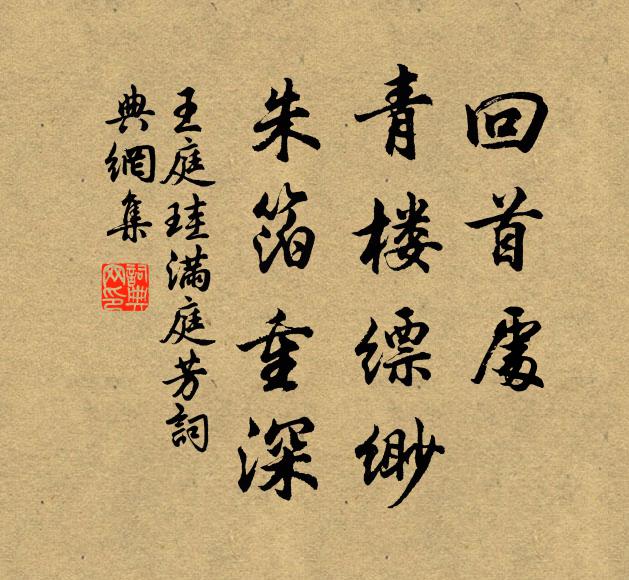 回首處
青楼縹緲
朱箔重深
王庭珪满庭芳詞
典網集
詞典網印